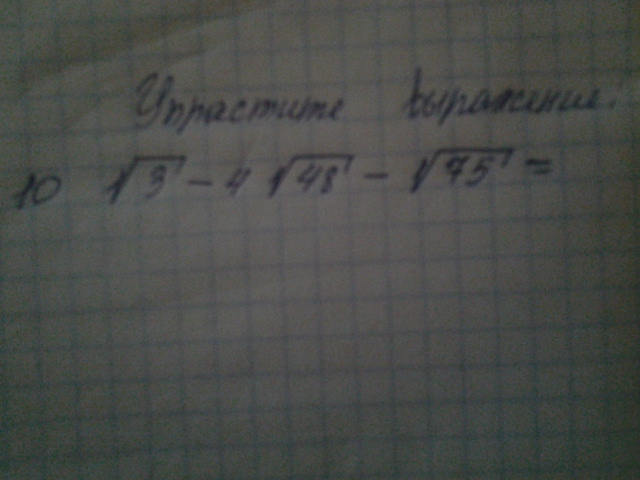 Упрастите выражение:
10 √3 - 4 √48 - √75 =